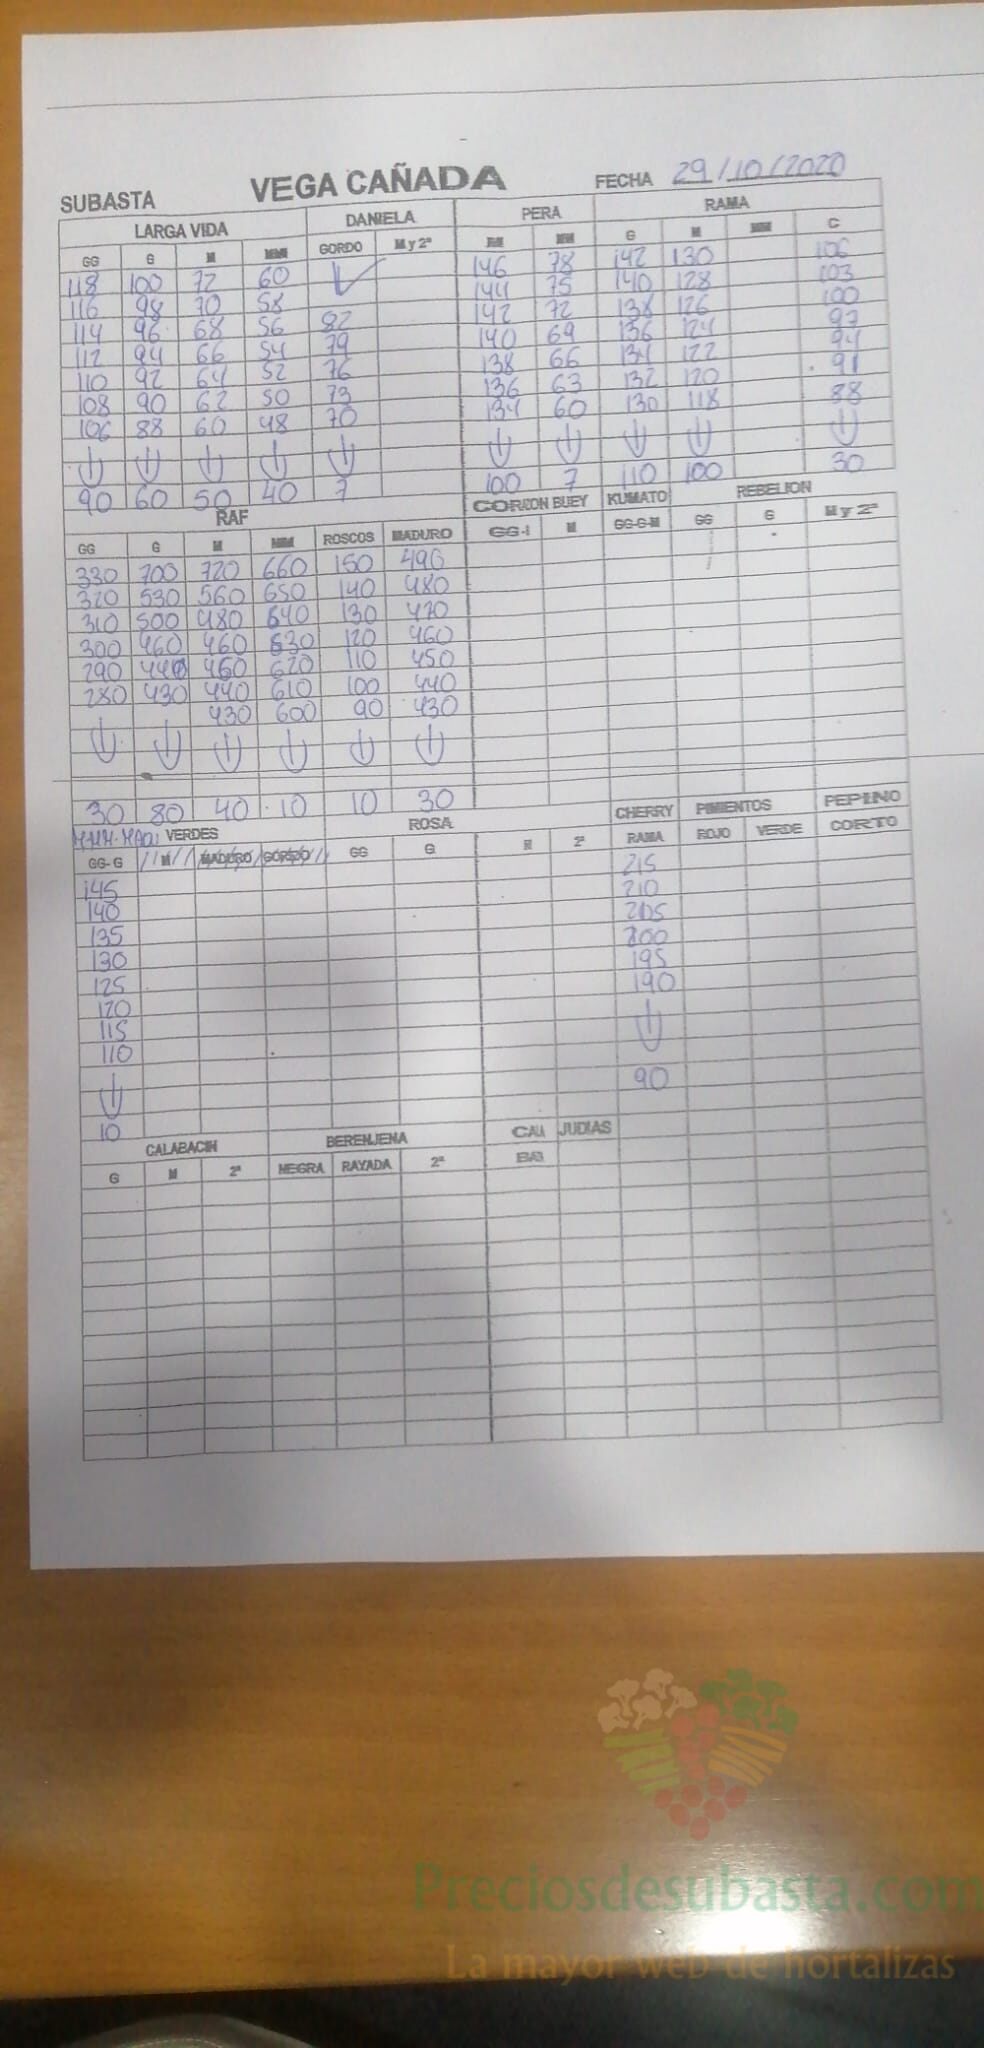 SUBASTA VEGA CAÑADA FECHA 29/10/2020
LARGA VIDA DANIELA PERA RAMA
GG G M MM GORDO M y 2ª M MM G M MM C
118 100 72 60 146 78 142 130 106
116 98 70 58 144 75 140 128 103
114 96 68 56 82 142 72 138 126 100
112 94 66 54 79 140 69 136 124 97
110 92 64 52 76 138 66 134 122 94
108 90 62 50 73 136 63 132 120 91
106 88 60 48 70 134 60 130 118 88
90 60 50 40 7 100 7 110 100 30
RAF CORAZON BUEY KUMATO REBELION
GG G M MM ROSCOS MADURO GG-I M GG-G-M GG G M y 2ª
330 700 720 660 150 490
320 530 560 650 140 480
310 500 480 640 130 470
300 460 460 630 120 460
290 440 450 620 110 450
280 430 440 610 100 440
430 600 90 430
30 80 40 10 10 30
VERDES ROSA CHERRY PIMIENTOS PEPINO
GG-G M MADURO GORDO GG G M 2ª RAMA ROJO VERDE CORTO
145 215
140 210
135 205
130 200
125 195
120 190
115
110
10 90
CALABACIN BERENJENA CALA JUDIAS
G M 2ª NEGRA RAYADA 2ª BA
Preciosdesubasta.com
La mayor web de hortalizas